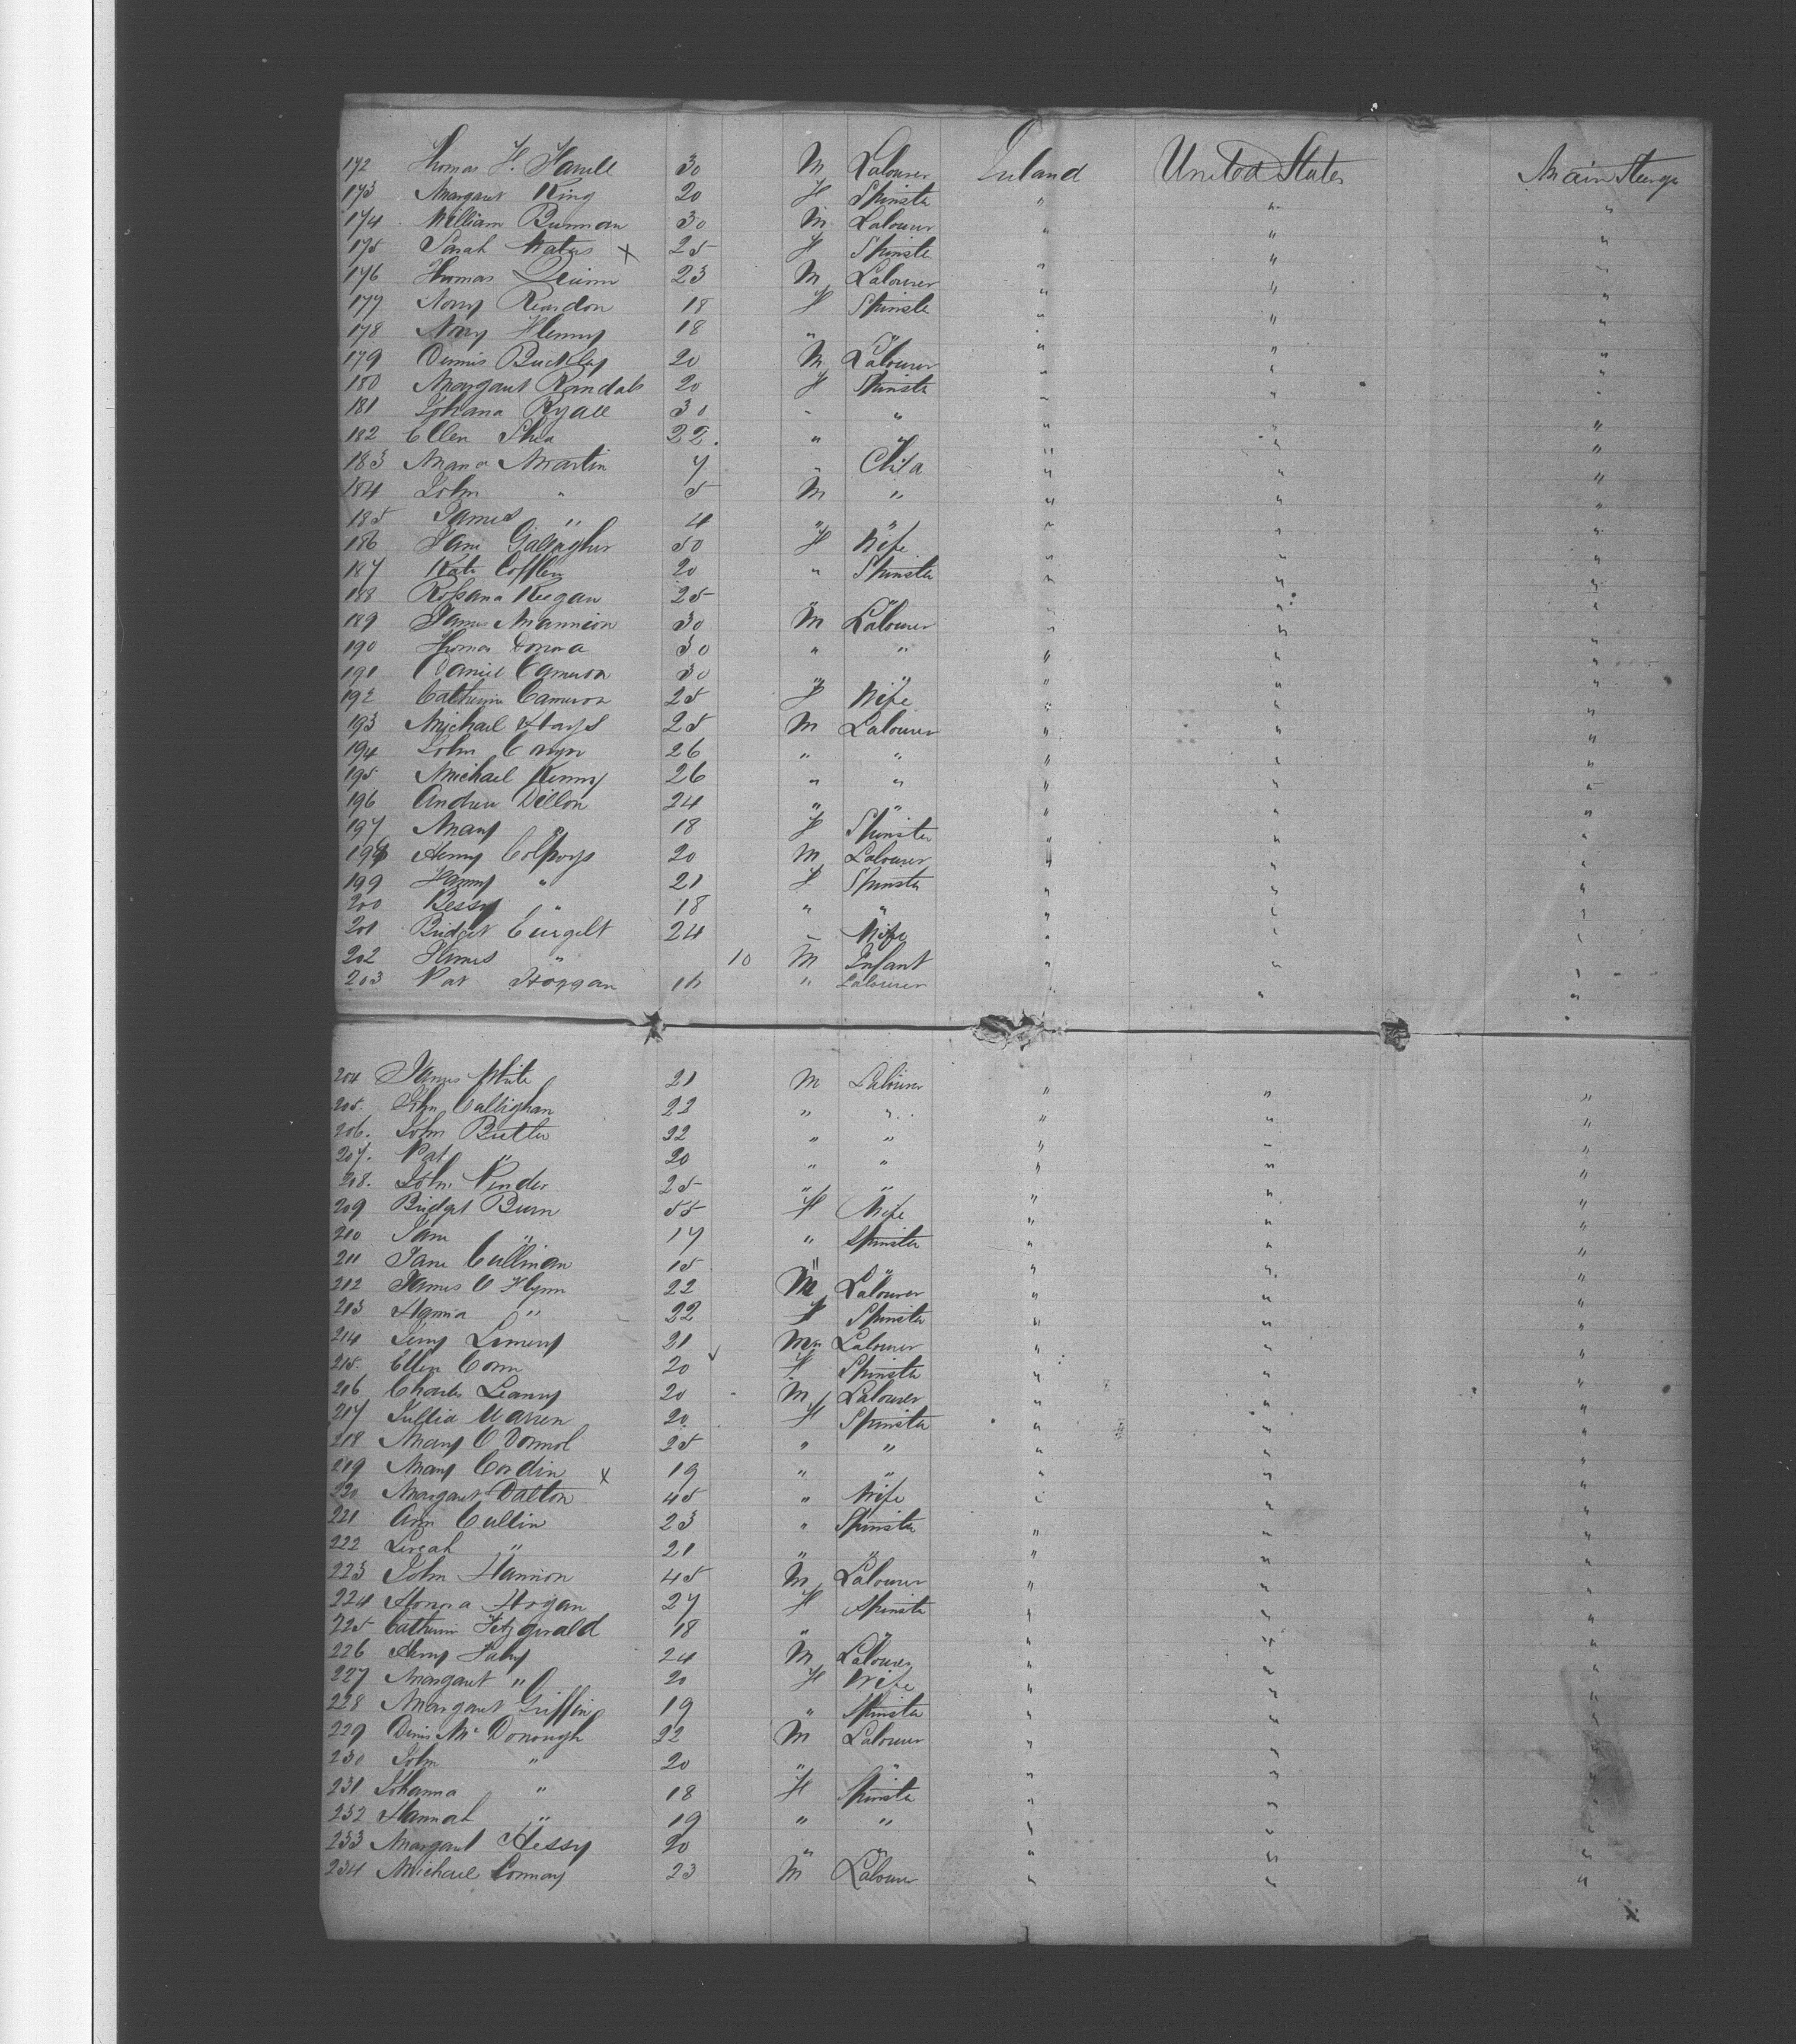 172 Thomas F. Farrell 30 M Labourer Ireland United States Main Steerge
173 Margaret King 20 F Spinster " " "
174 William Burman 30 M Labourer " " "
175 Sarah Waters x 25 F Spinster " "
176 Thomas Quinn 23 M Labourer " " "
177 Nony Reardon 18 F Spinster " " "
178 Nony Flemmy 18 " " " " "
179 Dennis Buckley 20 M Labourer " " "
180 Margaret Randals 20 F Spinster " " "
181 Johana Ryall 30 " " " " "
182 Ellen Shea 22 " " " " "
183 Maria Martin 7 " Child " " "
184 John " 5 M " " " "
185 James " 4 " " " " "
186 Jane Gallagher 50 F Wife " " "
187 Kate Cofflen 20 " Spinster " " "
188 Rosana Keegan 25 " " " " "
189 James Mannion 30 M Labourer " " "
190 Thomas 30 " " " " "
191 Daniel Cameron 30 " " " " "
192 Catherine Cameron 25 F Wife " " "
193 Michael Hays 25 M Labourer " " "
194 John 26 " " " " "
195 Michael Kenny 26 " " " " "
196 Andrew Dillon 24 " " " " "
197 Mary " 18 F Spinster " " "
198 Henry Colphoys 20 M Labourer " " "
199 Fanny " 21 F Spinster " " "
200 Bessy " 18 " " " " "
201 Bridget 24 " Wife " " "
202 James " 10 M Infant " " "
203 Pat Hoggan 16 " Labourer " " "
204 James White 21 M Labourer " " "
205 John Callighan 22 " " " " "
206. John Butler 22 " " " " "
207. Pat " 20 " " " " "
208. John Pender 25 " " " " "
209 Bridget Burn 55 F Wife " " "
210 Jane " 17 " Spinster " " "
211 Jane Cullinan 15 " " " " "
212 James O Flynn 22 M Labourer " " "
213 Hanna " 22 F Spinster " " "
214 21 M Labourer " " "
215 Ellen Conn 20 F Spinster " " "
216 Charles Leanny 20 M Labourer " " "
217 Jullia Warren 20 F Spinster " " "
218 Mary O Donnol 25 " " " " "
219 Mary Cordin x 19 " " " " "
220 Margaret Dalton 45 " Wife " " "
221 Ann Cullin 23 " Spinster " " "
222 " 21 " " " " "
223 John Hannon 45 M Labourer " " "
224 Honora Hogan 27 F Spinster " " "
225 Catherine Fitzgerald 18 " " " " "
226 24 M Labourer " " "
227 Margaret " 20 F Wife " " "
228 Margaret Griffin 19 " Spinster " " "
229 Denis Mc Donough 22 M Labourer " " "
230 John " 20 " " " " "
231 Johanna " 18 F Spinster " " "
232 Hannah " 19 " " " " "
233 Margaret Hessy 20 " " " " "
234 Michael Conway 23 M Labourer " " "